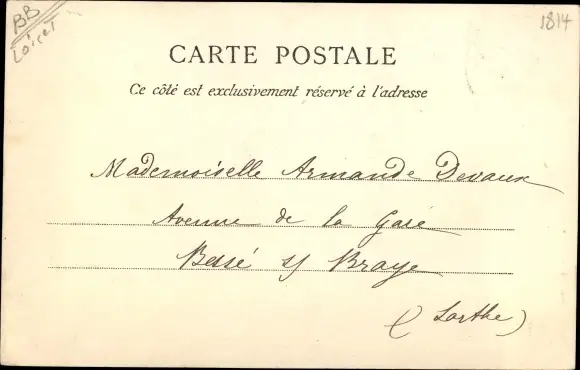 BB
Loiret
1814
CARTE POSTALE
Ce côté est exclusivement réservé à l'adresse
Mademoiselle Armande Devaux
Avenue de la Gare
Bessé s/ Braye
(Sarthe)